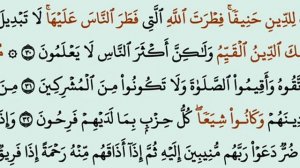 لِلدِّينِ حَنِيفًا ۚ فِطْرَتَ ٱللَّهِ ٱلَّتِى فَطَرَ ٱلنَّاسَ عَلَيْهَا ۚ لَا تَبْدِيلَ
لِكَ ٱلدِّينُ ٱلْقَيِّمُ وَلَٰكِنَّ أَكْثَرَ ٱلنَّاسِ لَا يَعْلَمُونَ ٣٠
تَّقُوهُ وَأَقِيمُوا۟ ٱلصَّلَوٰةَ وَلَا تَكُونُوا۟ مِنَ ٱلْمُشْرِكِينَ ٣١
هُمْ وَكَانُوا۟ شِيَعًا ۖ كُلُّ حِزْبٍۭ بِمَا لَدَيْهِمْ فَرِحُونَ ٣٢
ضُرٌّ دَعَوْا۟ رَبَّهُم مُّنِيبِينَ إِلَيْهِ ثُمَّ إِذَآ أَذَاقَهُم مِّنْهُ رَحْمَةً إِذَا فَرِيقٌ